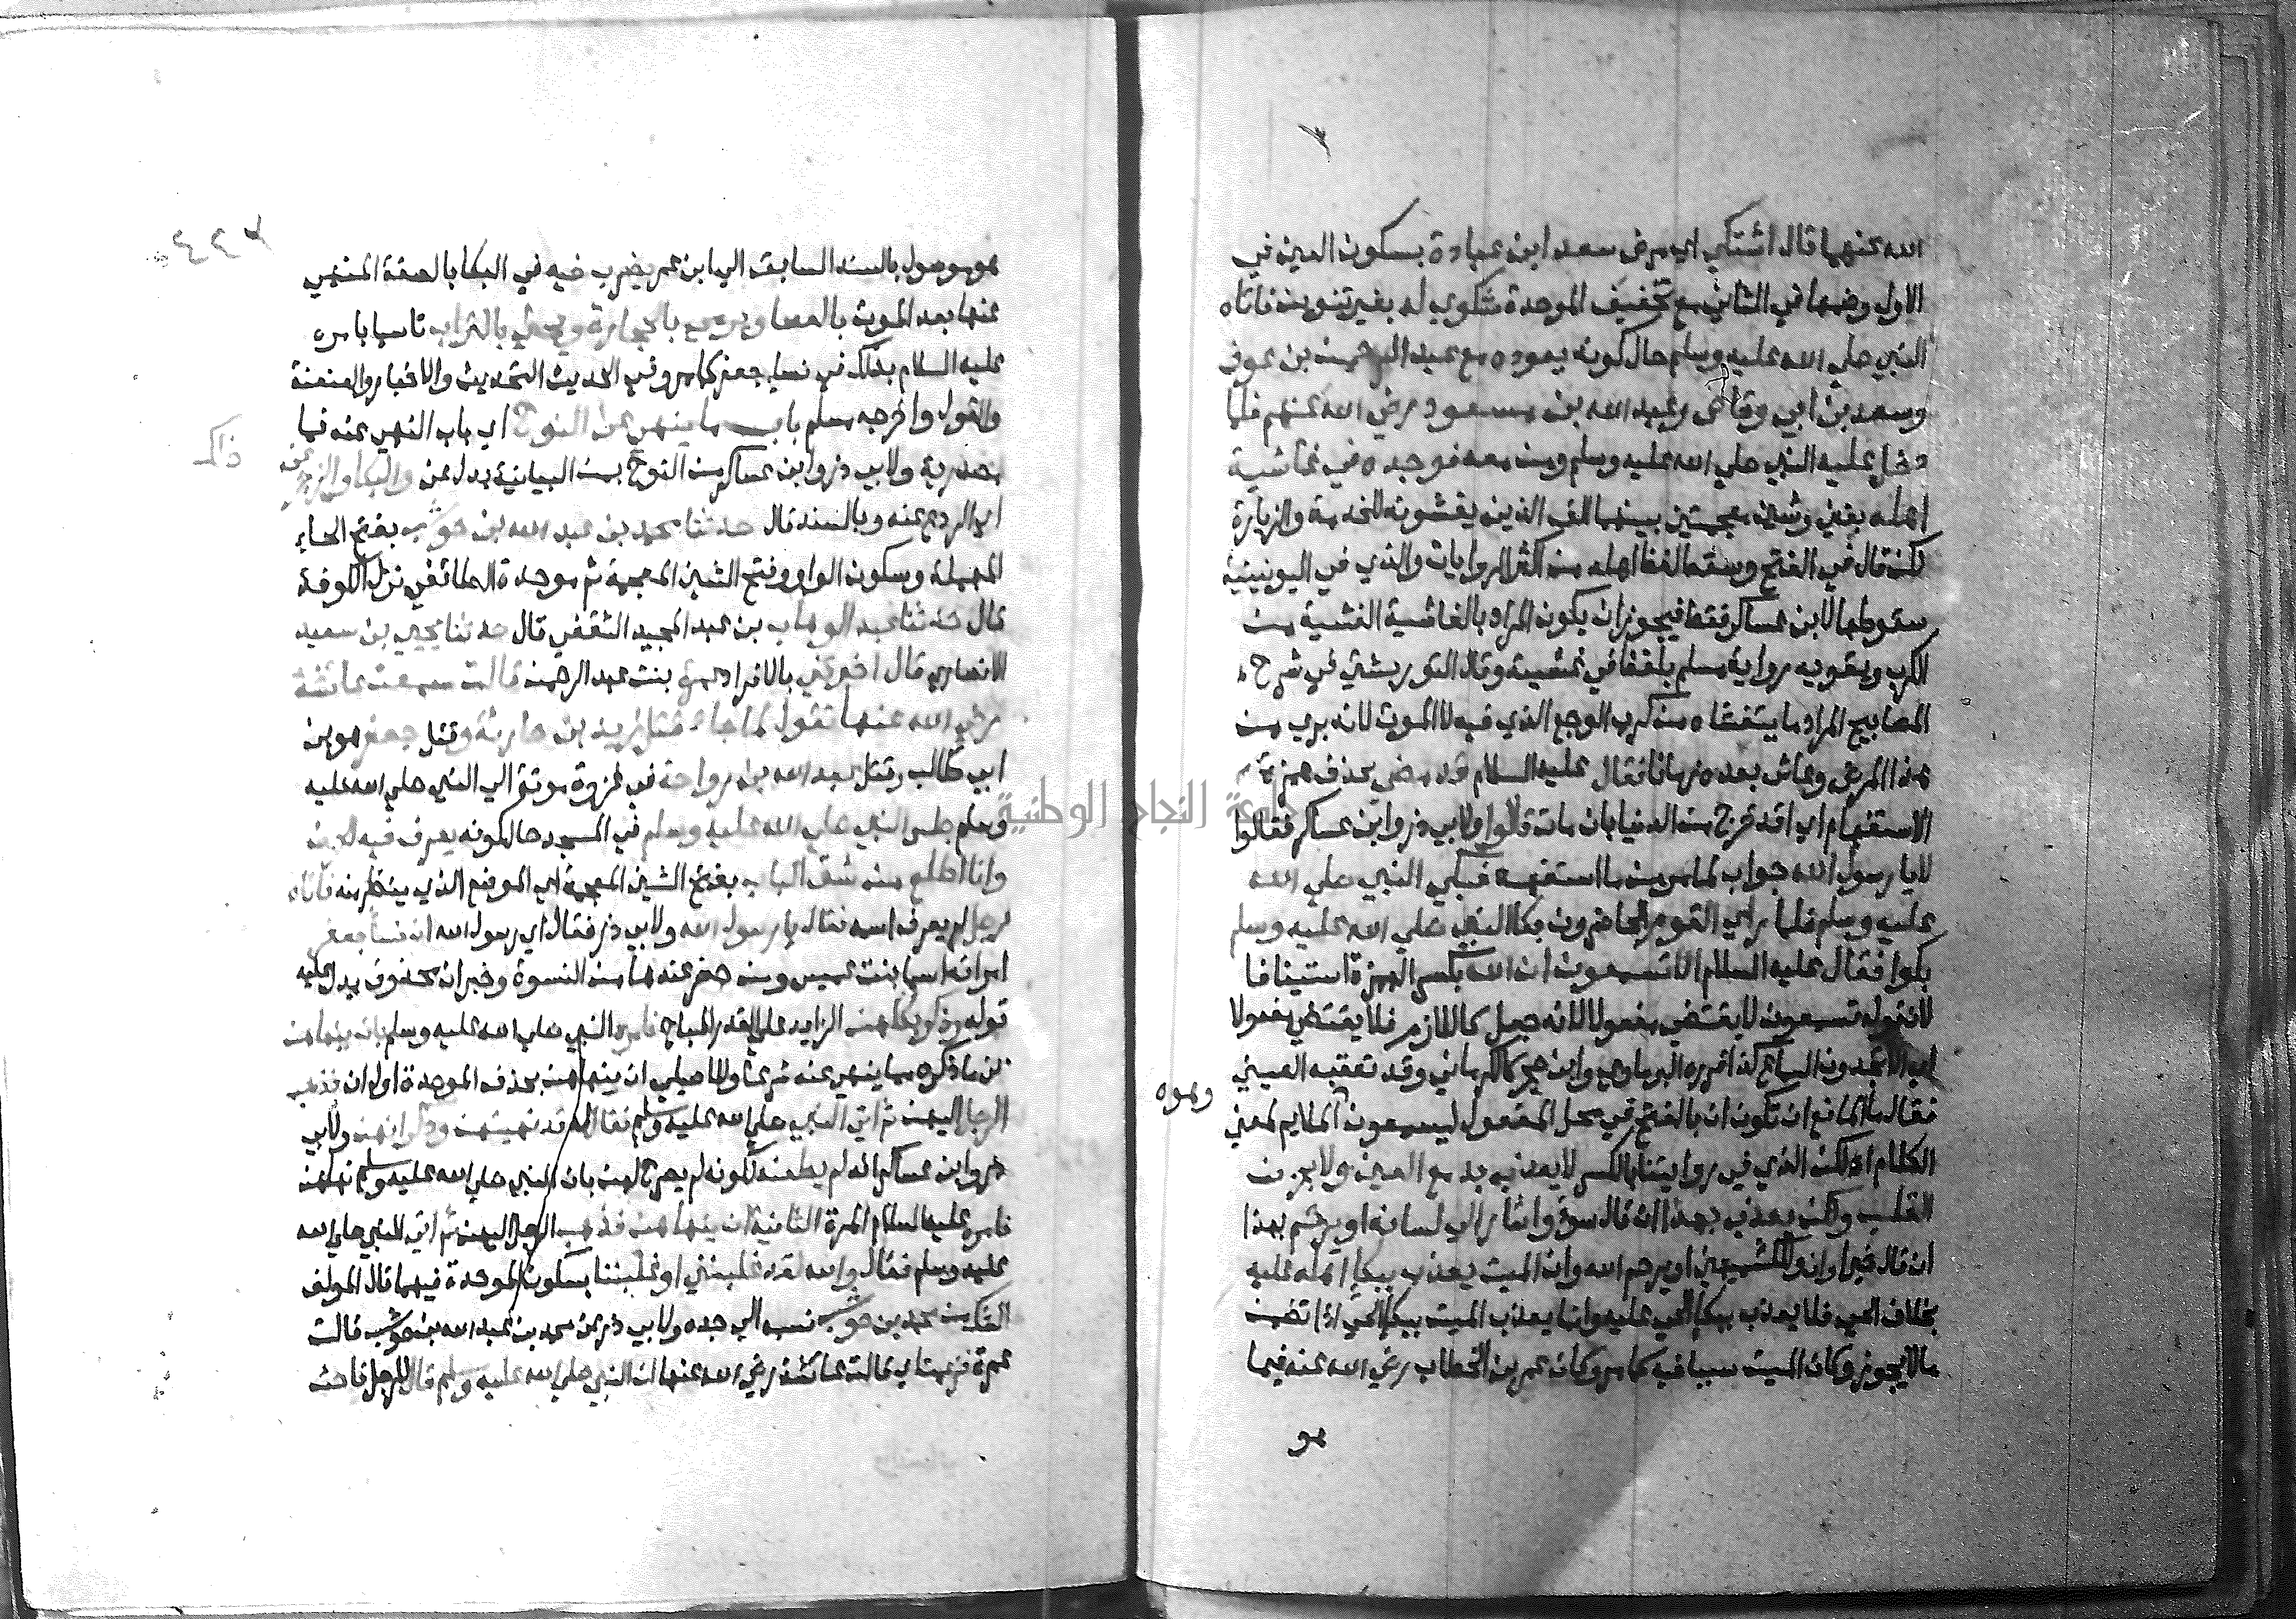 الله عنهما قال اشتكي اي مرض سعد ابن عبادة بسكون العين في
الاول وضمها في الثاني مع تخفيف الموحدة شكوي له بغير تنوين فاتاه
النبي صلي الله عليه وسلم حال كونه يعوده مع عبد الرحمن بن عوف
وسعد بن ابي وقاص وعبد الله بن مسعود رضي الله عنهم فلما
دخل عليه النبي صلي الله عليه وسلم ومن معه فوجده في غاشية
اهله بغين وشين معجمتين بينهما الف الذين يغشونه للخدمة والزيارة
لكن قال في الفتح وسقط لفظ اهله من اكثر الروايات والذي في اليونينية
سقوطها لابن عساكر فقط فيجوز ان يكون المراد بالغاشية الغشية من
الكرب ويقويه رواية مسلم بلفظ في غشيته وقال التوربشتي في شرح
المصابيح المراد ما يتغشاه من كرب الوجع الذي فيه لا الموت لانه بري من
هذا المرض وعاش بعده زمانا فقال عليه السلام قد مضي بحذف همزة
الاستفهام اي اقد خرج من الدنيا بان مات قالوا ولابي ذر وابن عساكر فقالوا
لا يا رسول الله جواب لما مر من ما استفهمه فبكي النبي صلي الله
عليه وسلم فلما راي القوم الحاضرون بكا النبي صلي الله عليه وسلم
بكوا فقال عليه السلام الا تسمعون ان الله بكسر الهمزة استينافا
لان قوله تسمعون لا يقتضي مفعولا لانه جعل كاللازم فلا يقتضي مفعولا
اي الا تجدون السماع كذا قرره البرماوي وابن حجر كالكرماني وقد تعقبه العيني
فقال ما المانع ان تكون ان بالفتح في محل المفعول ليسمعون الملايم لمعني
وهوه
الكلام اه لكن الذي في روايتنا بالكسر لا يعذب بدمع العين ولا بحزن
القلب ولكن يعذب بهذا ان قال سوءا واشار الي لسانه او يرحم بهذا
ان قال خيرا وان وللكشميهني او يرحم الله وان الميت يعذب ببكا اهله عليه
بخلاف الحي فلا يعذب ببكا الحي عليه وانما يعذب الميت ببكا الحي اذا تضمن
ما لا يجوز وكان الميت سببا فيه كما مر وكان عمر بن الخطاب رضي الله عنه فيما
هو
هو موصول بالسند السابق الي ابن عمر يضرب فيه في البكا بالصفة المنهي
عنها بعد الموت بالعصا ويرمي بالحجارة ويحثي بالتراب تاسيا بامره
عليه السلام بذلك في نسا جعفر كما مر وفي الحديث التحديث والاخبار والعنعنة
والقول واخرجه مسلم باب ما ينهي عن النوح اي باب النهي عنه فما
مصدرية ولابي ذر وابن عساكر من النوح بمن البيانية بدل عن والبكا والزجر عن
ذلك
اي الردع عنه وبالسند قال حدثنا محمد بن عبد الله بن حوشب بفتح الحاء
المهملة وسكون الواو وفتح الشين المعجمة ثم موحدة الطائفي نزل الكوفة
قال حدثنا عبد الوهاب بن عبد المجيد الثقفي قال حدثنا يحيي بن سعيد
الانصاري قال اخبرتني بالافراد عمرة بنت عبد الرحمن قالت سمعت عائشة
رضي الله عنها تقول لما جاء قتل زيد بن حارثة وقتل جعفر هو بن
ابي طالب وقتل عبد الله بن رواحة في غزوة موتة الي النبي صلي الله عليه
وسلم جلس النبي صلي الله عليه وسلم في المسجد حال كونه يعرف فيه الحزن
وانا اطلع من شق الباب بفتح الشين المعجمة اي الموضع الذي ينظر منه فاتاه
رجل لم يعرف اسمه فقال يا رسول الله ولابي ذر فقال اي رسول الله ان نسا جعفر
امراته اسما بنت عميس ومن حضر عندها من النسوة وخبر ان محذوف يدل عليه
قوله وذكر بكاهن الزايد علي القدر المباح فامره النبي صلي الله عليه وسلم بان ينهاهن
عن ما ذكره مما ينهي عنه شرعا وللاصيلي ان ينهاهن بحذف الموحدة اول ان فذهب
الرجل اليهن ثم اتي النبي صلي الله عليه وسلم فقال قد نهيتهن وذكر انهن ولابي
ذر وابن عساكر انه لم يطعنه لكونه لم يصرح لهن بان النبي صلي الله عليه وسلم نهاهن
فامره عليه السلام المرة الثانية ان ينهاهن فذهب الرجل اليهن ثم اتي النبي صلي الله
عليه وسلم فقال والله لقد غلبنني او غلبننا بسكون الموحدة فيهما قال المولف
الشك من محمد بن حوشب نسبه الي جده ولابي ذر من محمد بن عبد الله بن حوشب قالت
عمرة فزعمت اي قالت عائشة رضي الله عنها ان النبي صلي الله عليه وسلم قال للرجل فاحث
جامعة النجاح الوطنية